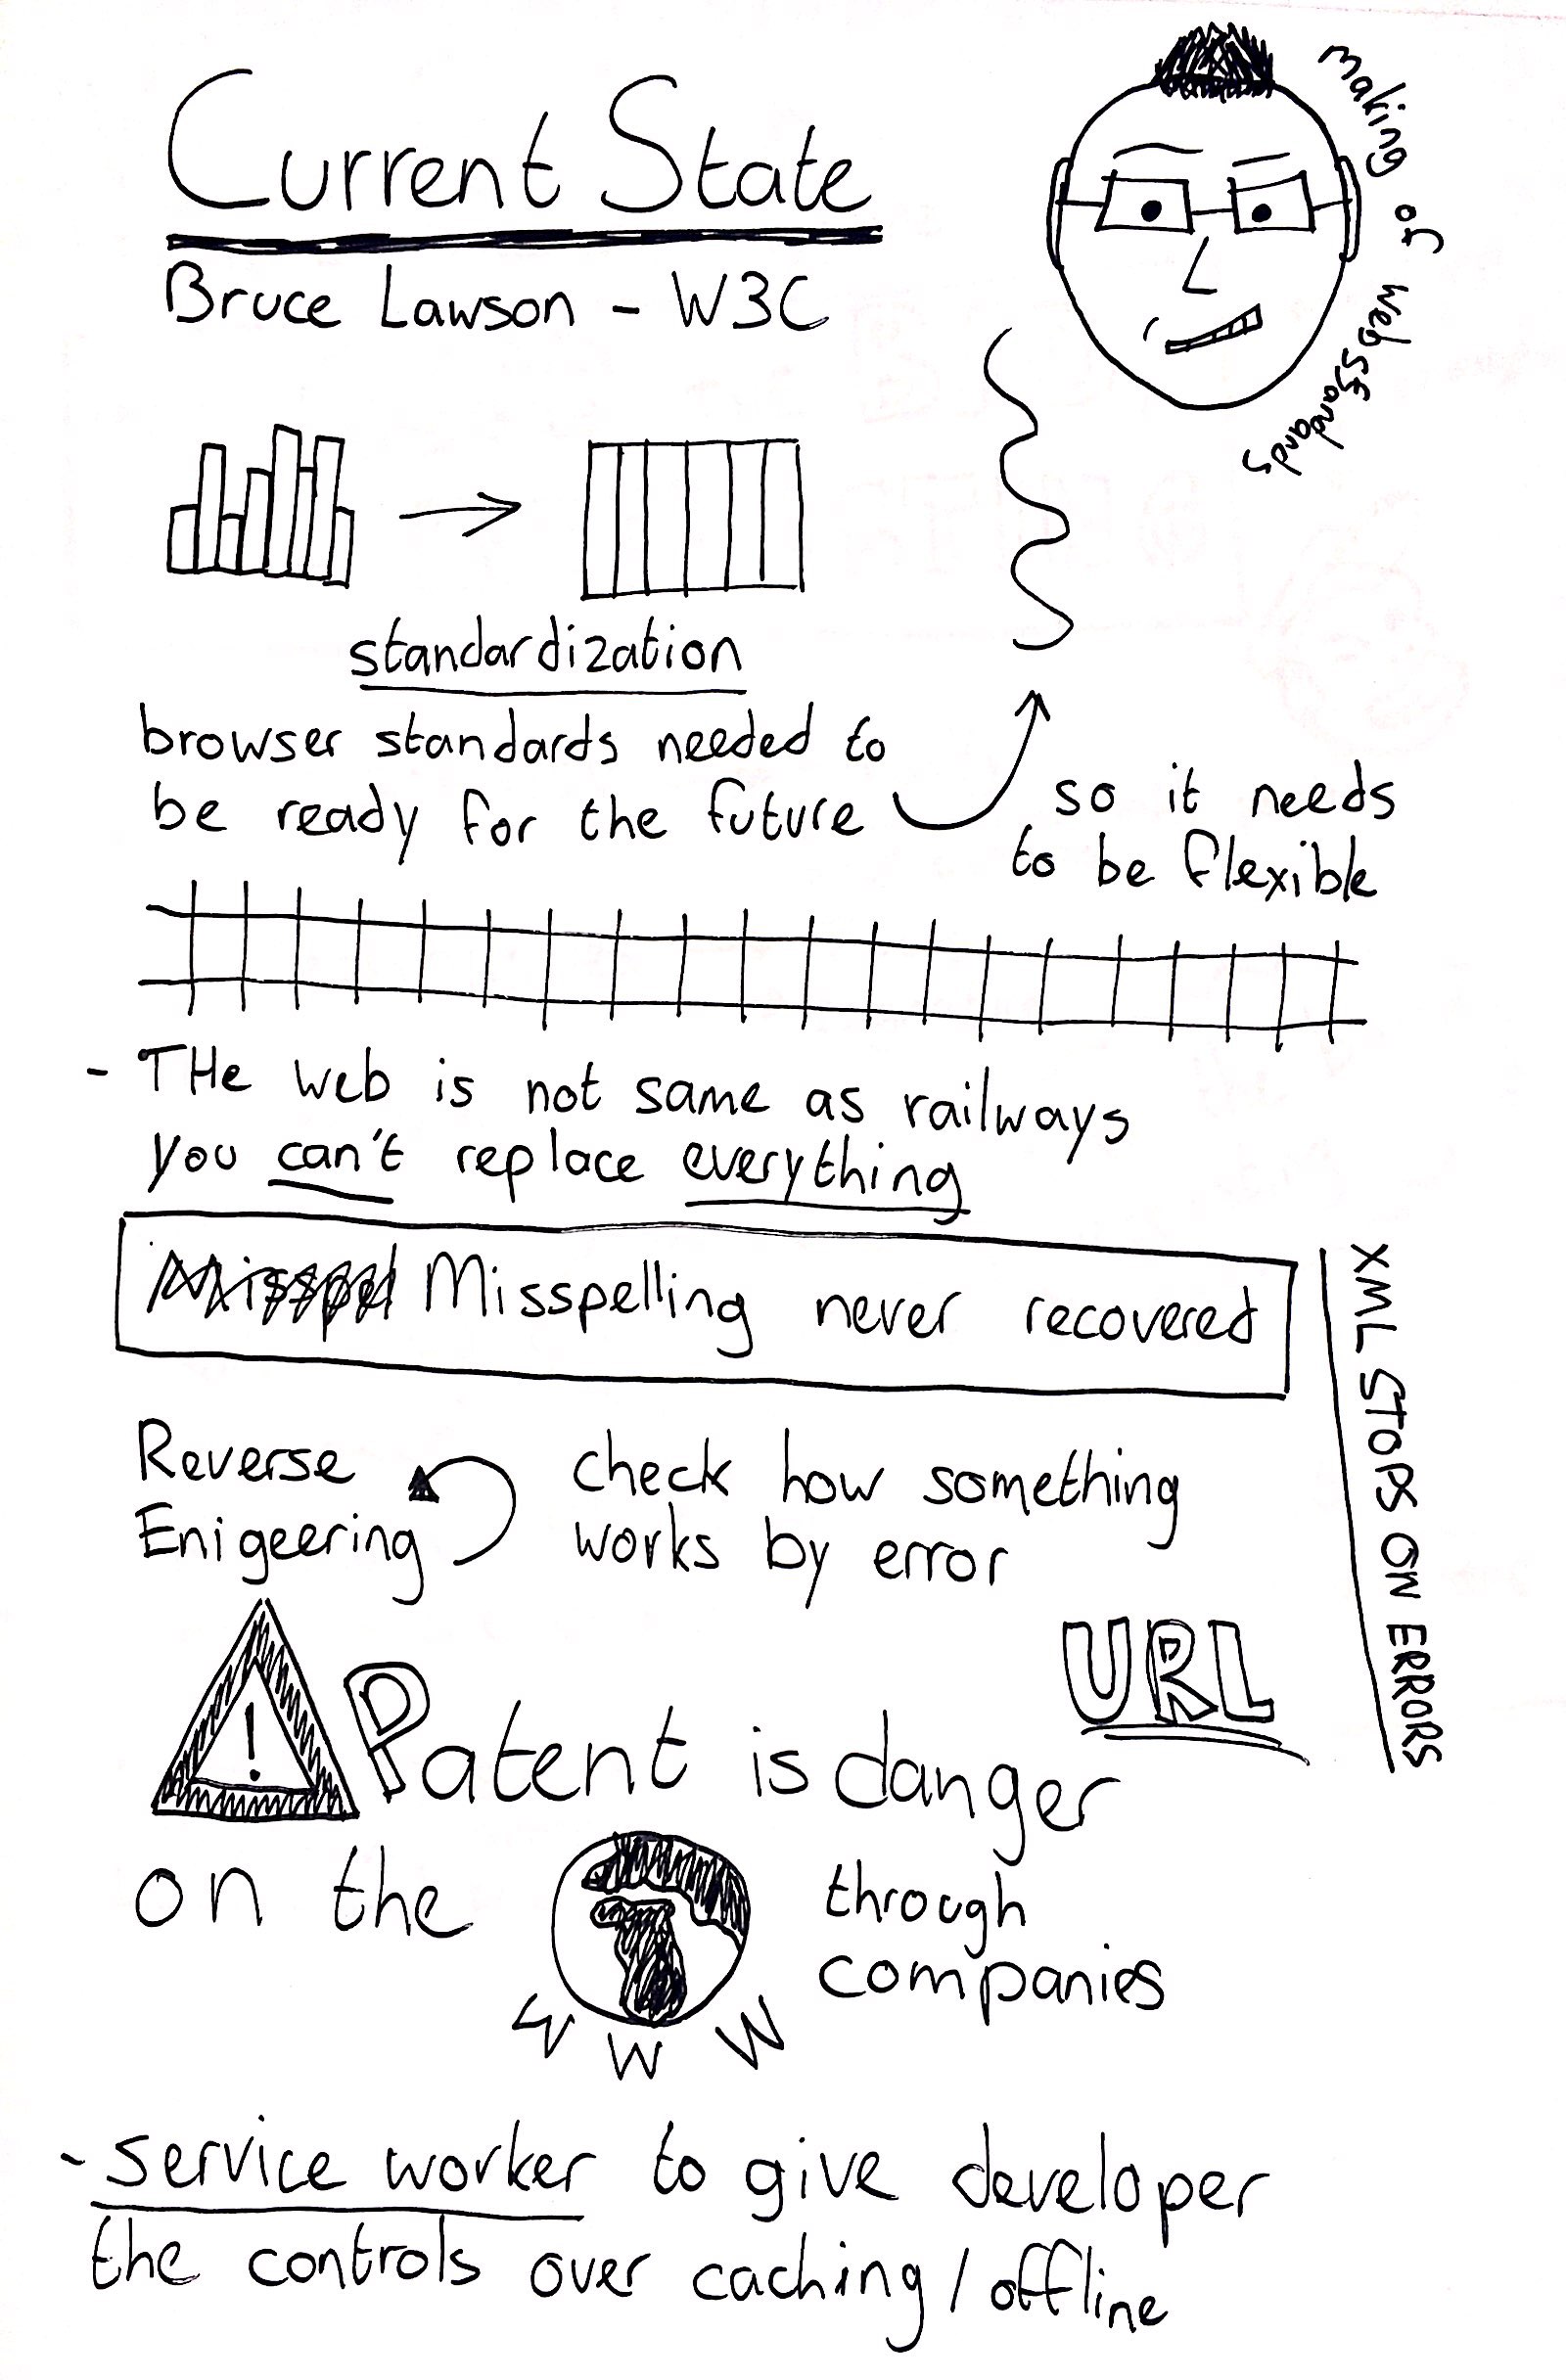 Current State
Bruce Lawson - W3C
Making of Web Standards
standardization
browser standards needed to
be ready for the future
so it needs
to be flexible
- THe web is not same as railways
you can't replace everything
Misspel Misspelling never recovered
XML STOPS ON ERRORS
Reverse
Enigeering
check how something
works by error
URL
! Patent is danger
on the
through
companies
W W W
- service worker to give developer
the controls over caching / offline